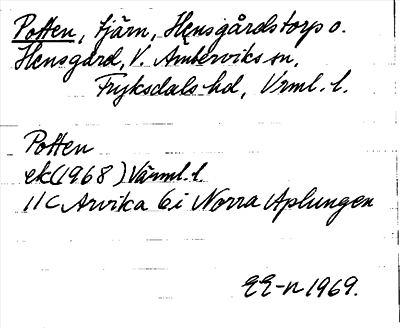 Potten, tjärn, Hensgårdstorp o.
Hensgård, V. Ämterviks sn,
Fryksdals hd, Vrml. l.
Potten
ek(1968) Värml. l.
11C Arvika 6i Norra Aplungen
EE-n 1969.